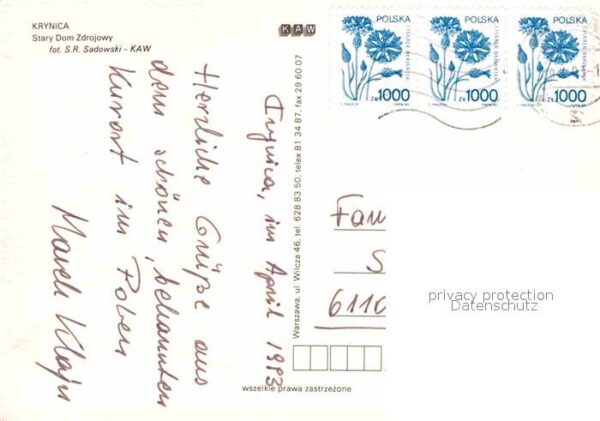 KRYNICA
Stary Dom Zdrojowy
fot. S.R. Sadowski - KAW
KAW
Krynica, im April 1993
Herzliche Grüße aus
dem schönen, bekannten
Kurort im Polen
Marek
Warszawa, ul. Wilcza 46, tel. 628 83 50, telex 81 34 87, fax 29 60 07
POLSKA
CHABER BŁAWATEK
Zł 1000
POLSKA
CHABER BŁAWATEK
Zł 1000
POLSKA
CHABER BŁAWATEK
Zł 1000
Fam
S
6110
privacy protection
Datenschutz
wszelkie prawa zastrzeżone